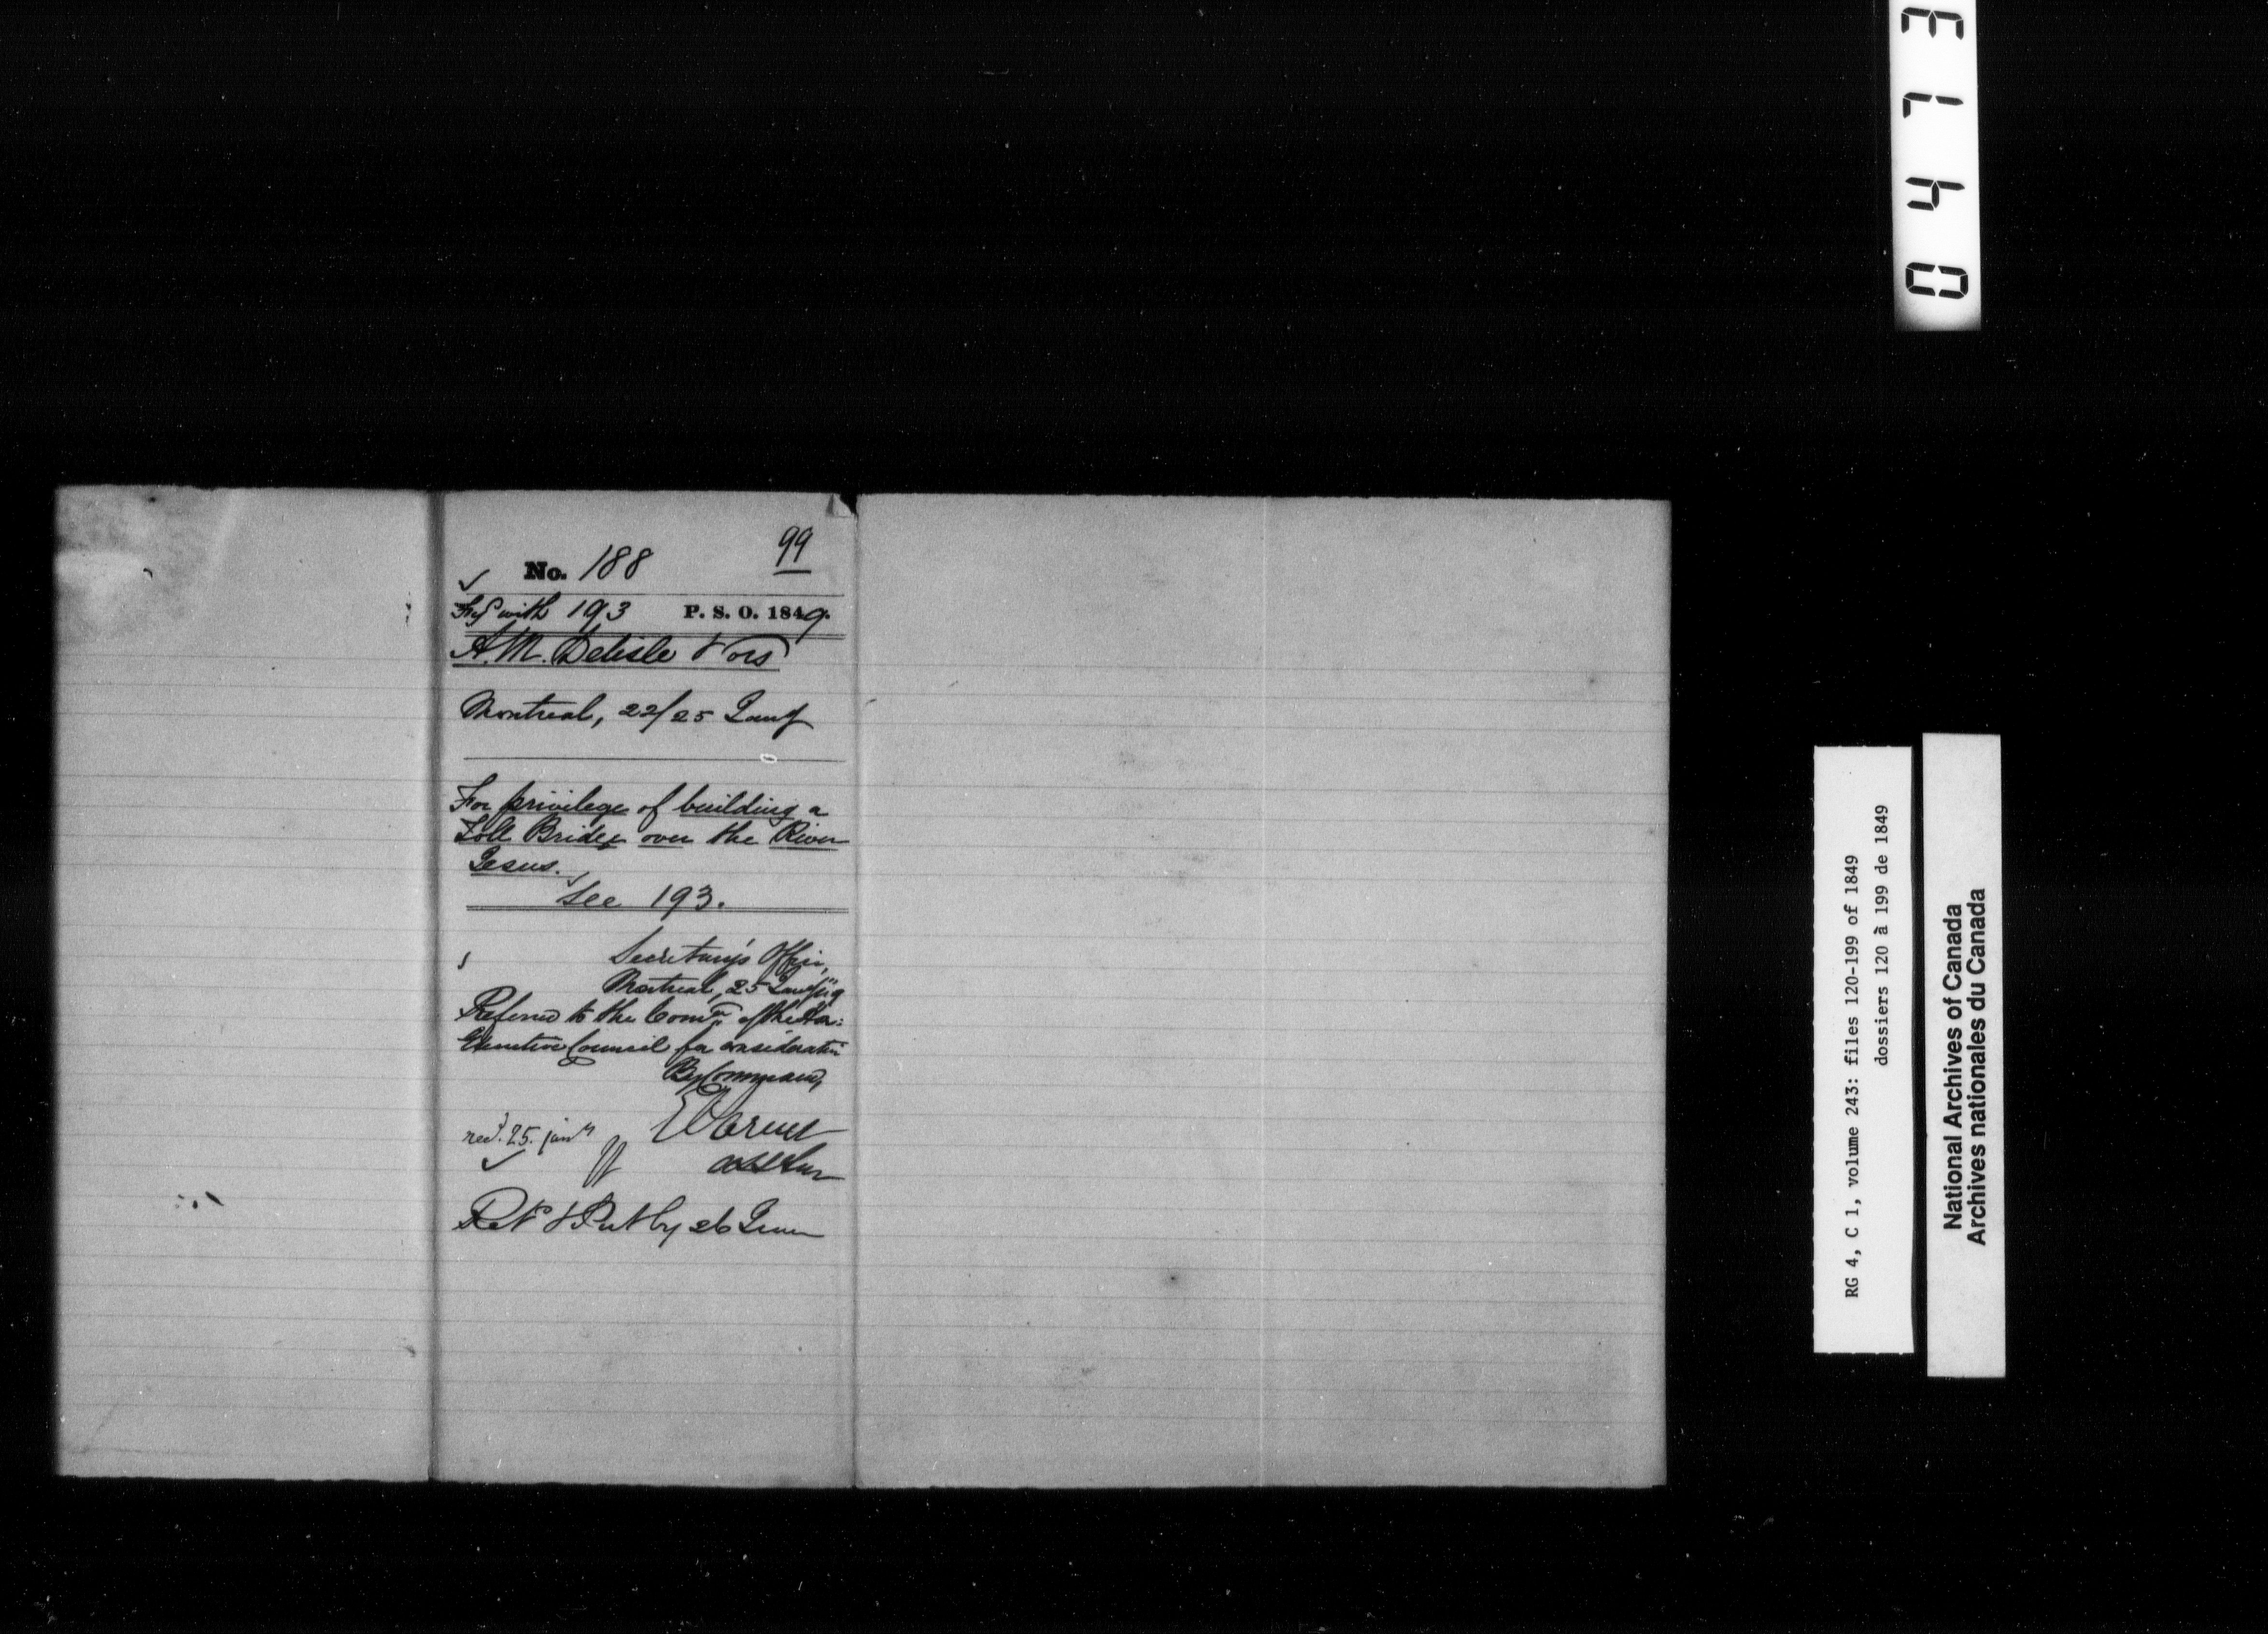 99
No. 188
with 193 P. S. O. 1849.
A. M. Delisle & ors
Montreal, 22/25 Jany
For privilege of building a
Toll Bridge over the River
Jesus.
See 193.
Secretary's Office,
Montreal, 25 Jany
Referred to the Comee of the Hon:
Executive Council for consideration
By Command,
recd. 25. jany
Asst Secy
Retd & Put by 26
0473
RG 4, C 1, volume 243: files 120-199 of 1849
dossiers 120 à 199 de 1849
National Archives of Canada
Archives nationales du Canada